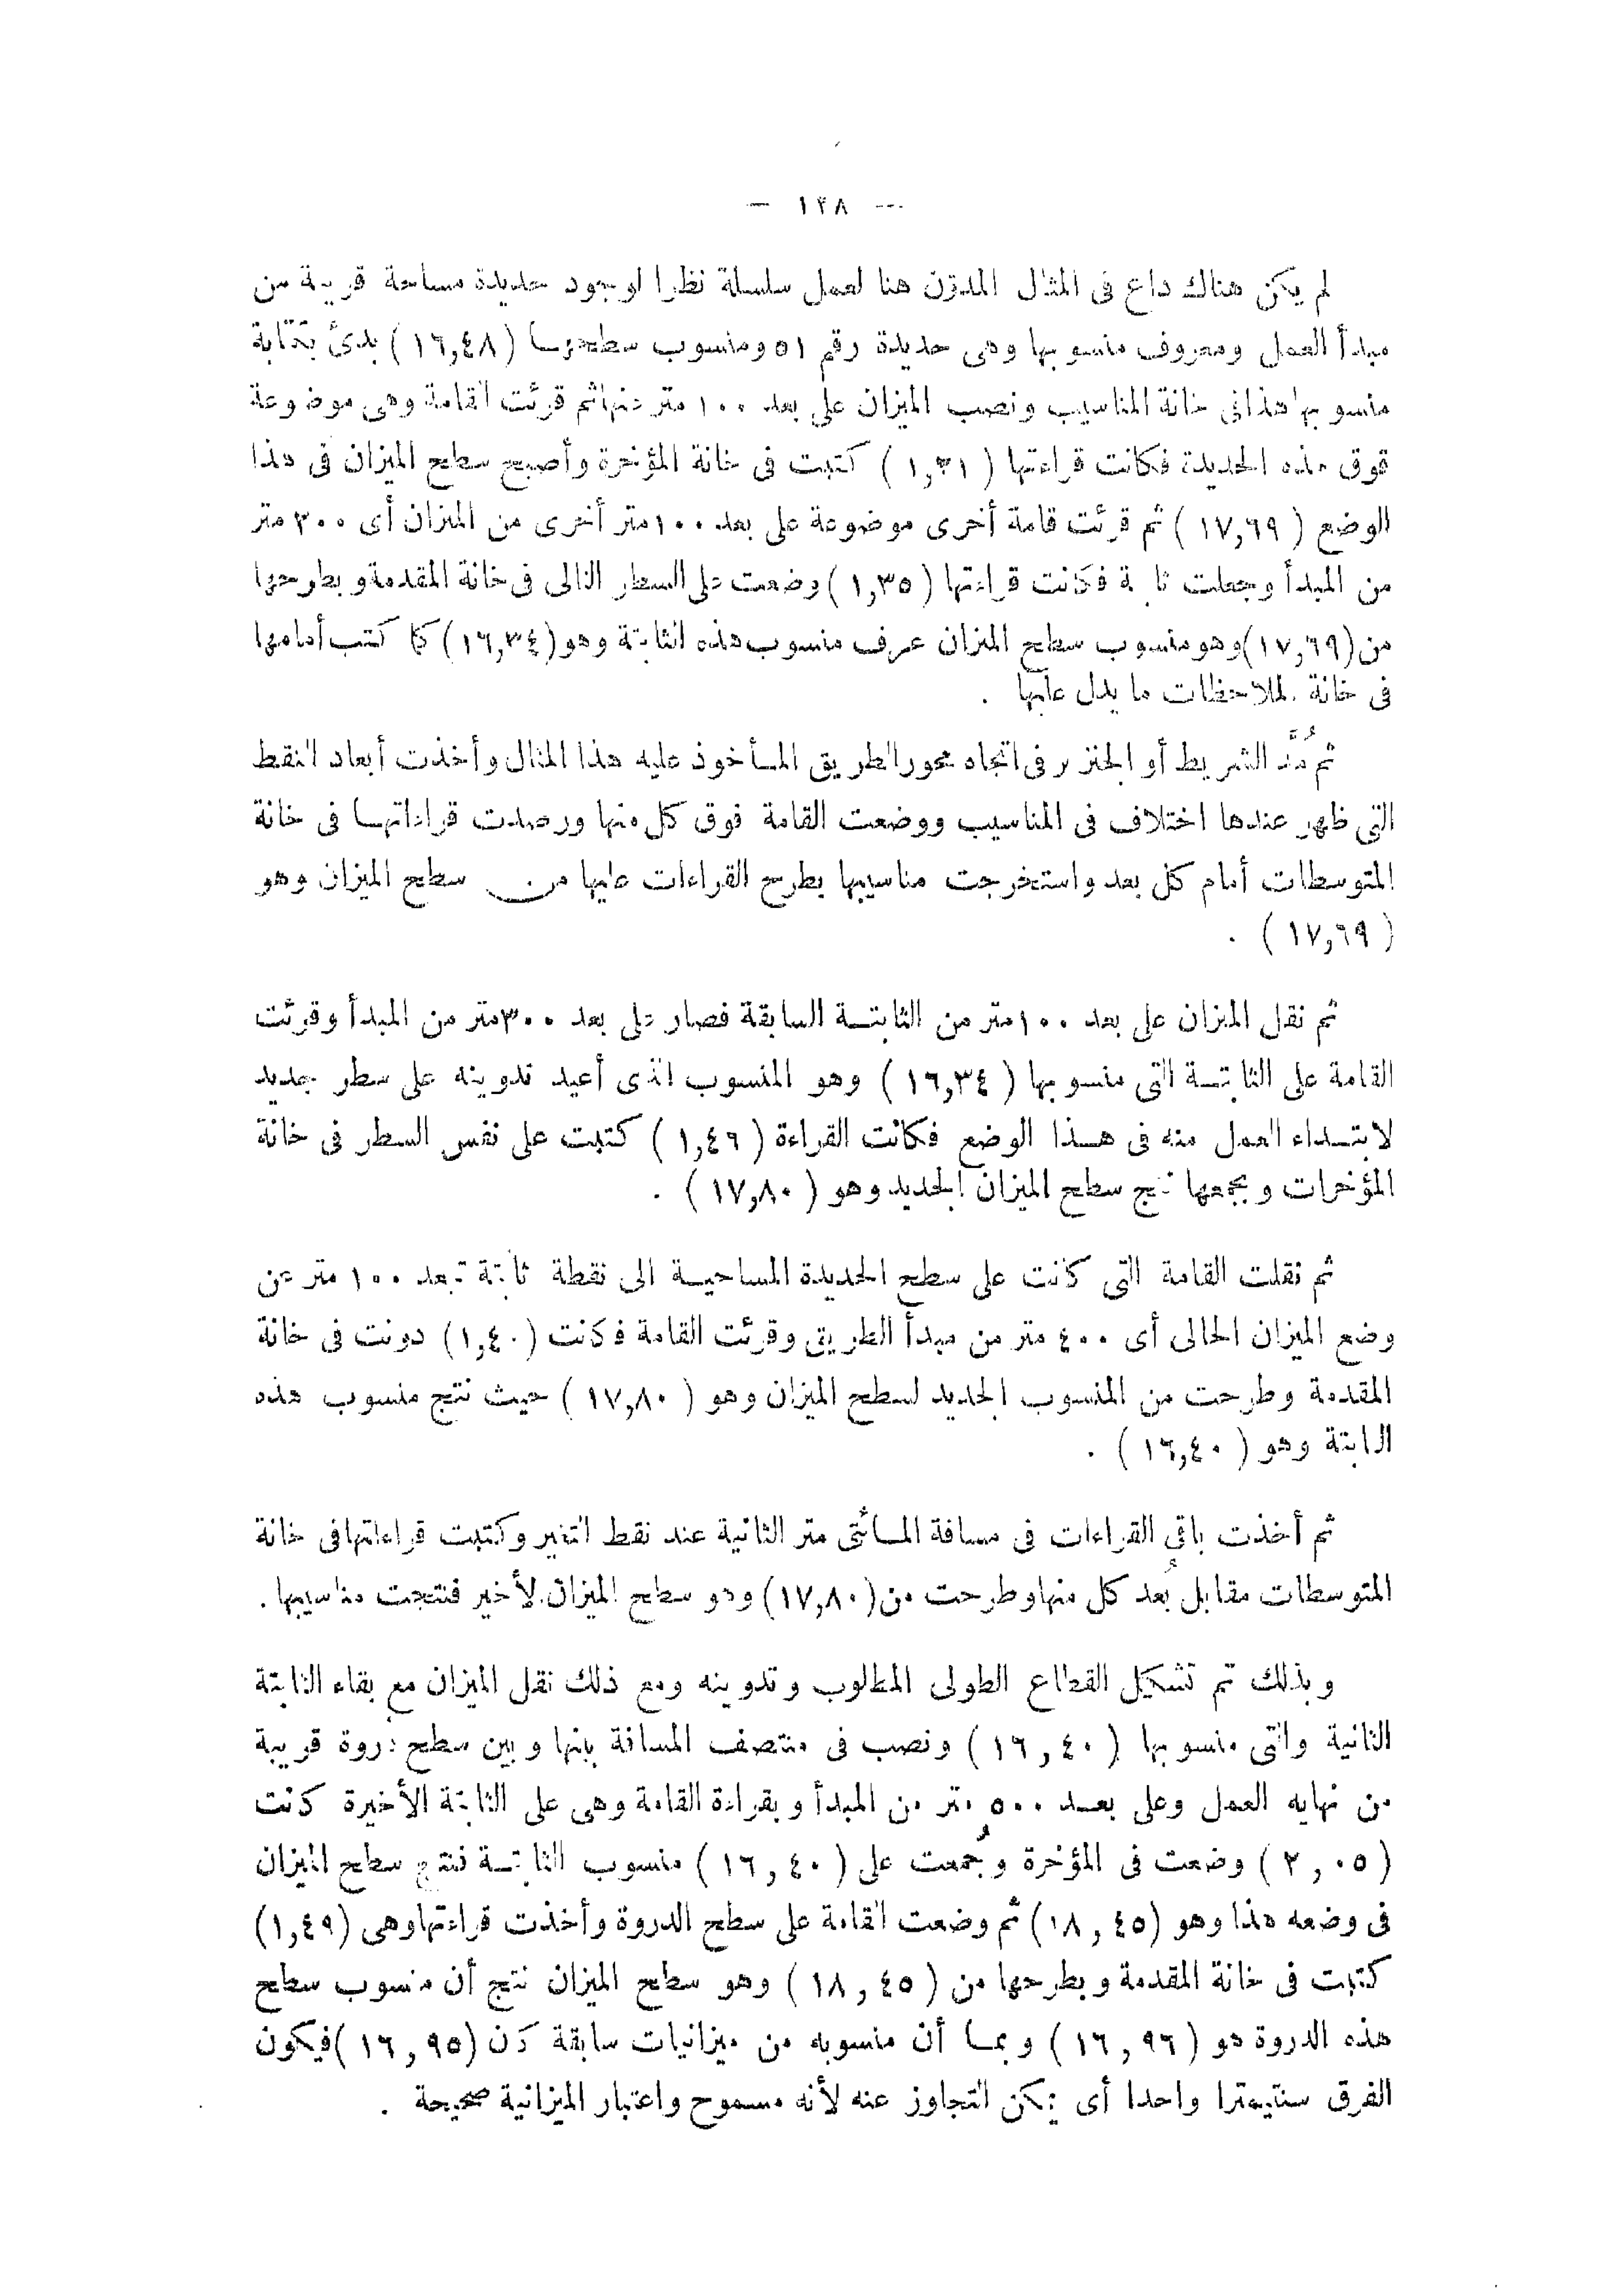 — ١٢٨ —
لم يكن هناك داع فى المثال المدوّن هنا لعمل سلسلة نظرا لوجود حديدة مساحة قريبة من
مبدأ العمل ومعروف منسوبها وهى حديدة رقم ٥١ ومنسوب سطحها (١٦,٤٨) بدئ بكتابة
منسوبها هذا فى خانة المناسيب ونصب الميزان على بعد ١٠٠ متر منها ثم قرئت القامة وهى موضوعة
فوق هذه الحديدة فكانت قراءتها (١,٢١) كتبت فى خانة المؤخرة وأصبح سطح الميزان فى هذا
الوضع (١٧,٦٩) ثم قرئت قامة أخرى موضوعة على بعد ١٠٠ متر أخرى من الميزان أى ٢٠٠ متر
من المبدأ وجعلت ثابتة فكانت قراءتها (١,٣٥) وضعت على السطر التالى فى خانة المقدمة وبطرحها
من (١٧,٦٩) وهو منسوب سطح الميزان عرف منسوب هذه الثابتة وهو (١٦,٣٤) كما كتب أمامها
فى خانة الملاحظات ما يدل عليها .
ثم مُدَّ الشريط أو الجنزير فى اتجاه محور الطريق المأخوذ عليه هذا المثال وأخذت أبعاد النقط
التى ظهر عندها اختلاف فى المناسيب ووضعت القامة فوق كل منها ورصدت قراءاتها فى خانة
المتوسطات أمام كل بعد واستخرجت مناسيبها بطرح القراءات عليها من سطح الميزان وهو
(١٧,٦٩) .
ثم نقل الميزان على بعد ١٠٠ متر من الثابتة السابقة فصار على بعد ٣٠٠ متر من المبدأ وقرئت
القامة على الثابتة التى منسوبها (١٦,٣٤) وهو المنسوب الذى أعيد تدوينه على سطر جديد
لابتداء العمل منه فى هذا الوضع فكانت القراءة (١,٤٦) كتبت على نفس السطر فى خانة
المؤخرات وبجمعها نتج سطح الميزان الجديد وهو (١٧,٨٠) .
ثم نقلت القامة التى كانت على سطح الحديدة المساحية الى نقطة ثابتة تبعد ١٠٠ متر عن
وضع الميزان الحالى أى ٤٠٠ متر من مبدأ الطريق وقرئت القامة فكانت (١,٤٠) دونت فى خانة
المقدمة وطرحت من المنسوب الجديد لسطح الميزان وهو (١٧,٨٠) حيث نتج منسوب هذه
الثابتة وهو (١٦,٤٠) .
ثم أخذت باقى القراءات فى مسافة المائتى متر الثانية عند نقط التغير وكتبت قراءاتها فى خانة
المتوسطات مقابل بُعد كل منها وطرحت من (١٧,٨٠) وهو سطح الميزان الأخير فنتجت مناسيبها .
وبذلك تم تشكيل القطاع الطولى المطلوب وتدوينه ومع ذلك نقل الميزان مع بقاء الثابتة
الثانية والتى منسوبها (١٦,٤٠) ونصب فى منتصف المسافة بينها وبين سطح دروة قريبة
من نهايه العمل وعلى بعد ٥٠٠ متر من المبدأ وبقراءة القامة وهى على الثابتة الأخيرة كانت
(٢,٠٥) وضعت فى المؤخرة وجُمعت على (١٦,٤٠) منسوب الثابتة فنتج سطح الميزان
فى وضعه هذا وهو (١٨,٤٥) ثم وضعت القامة على سطح الدروة وأخذت قراءتها وهى (١,٤٩)
كتبت فى خانة المقدمة وبطرحها من (١٨,٤٥) وهو سطح الميزان نتج أن منسوب سطح
هذه الدروة هو (١٦,٩٦) وبما أن منسوبه من ميزانيات سابقة كان (١٦,٩٥) فيكون
الفرق سنتيمترا واحدا أى يمكن التجاوز عنه لأنه مسموح واعتبار الميزانية صحيحة .